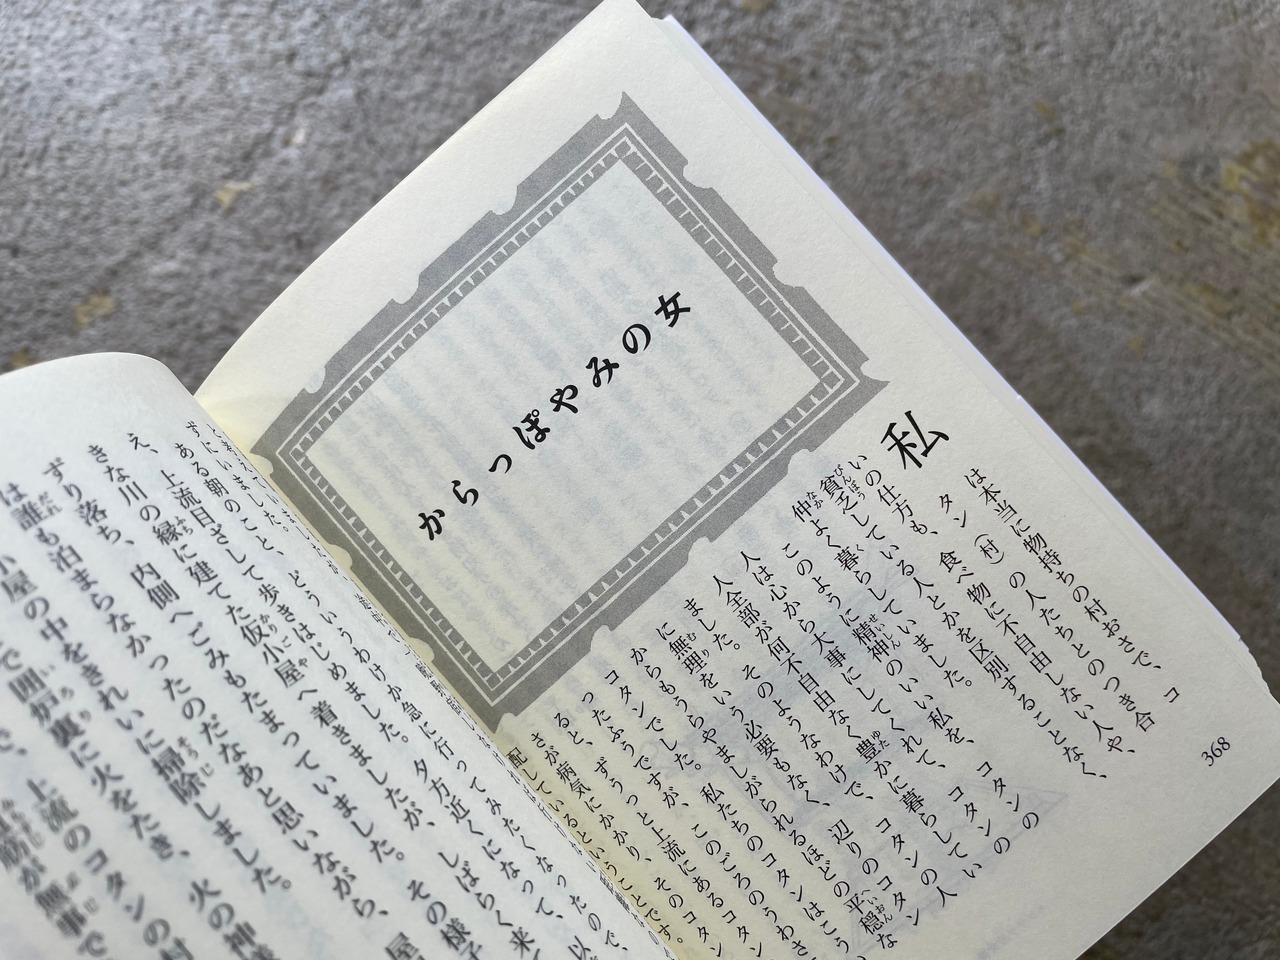 からっぽやみの女
私
は本当に物持ちの村おさで、コ
タン（村）の人たちとのつき合
いの仕方も、食べ物に不自由しない人や、
貧乏している人とかを区別することなく、
仲よく暮らしていました。
このように精神のいい私を、コタンの
人は心から大事にしてくれて、コタンの
人全部が何不自由なく豊かに暮らしてい
ました。そのようなわけで、辺りのコタン
に無理をいう必要もなく、
からもうらやましがられるほどの平穏な
コタンでした。私たちのコタンはこう
ったふうですが、このごろのうわさ
ると、ずうっと上流にあるコタン
さが病気にかかり、そのコタン
配しているということです。
368
ずにいました。
ある朝のこと、どういうわけか急に行ってみたくなったので、
え、上流目ざして歩きはじめました。夕方近くになって、
きな川の縁に建てた仮小屋へ着きましたが、しばらく来
ずり落ち、内側へごみもたまっていました。その様子
は誰も泊まらなかったのだなあと思いながら、屋
小屋の中をきれいに掃除しました。
で囲炉裏に火をたき、火の神様
で、上流のコタンの村